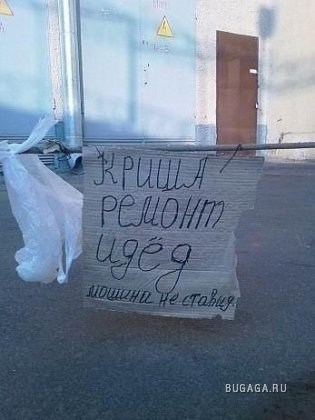 КРИША
РЕМОНТ
идёд
мошина не ставид.
BUGAGA.RU